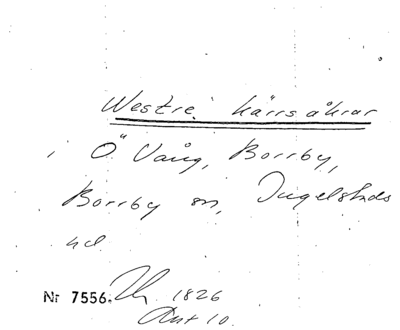 Westre kärrsåkrar
Ö Vång, Borrby,
Borrby sn, Ingelstads
hd
Nr 7556. 1826
Akt 10.